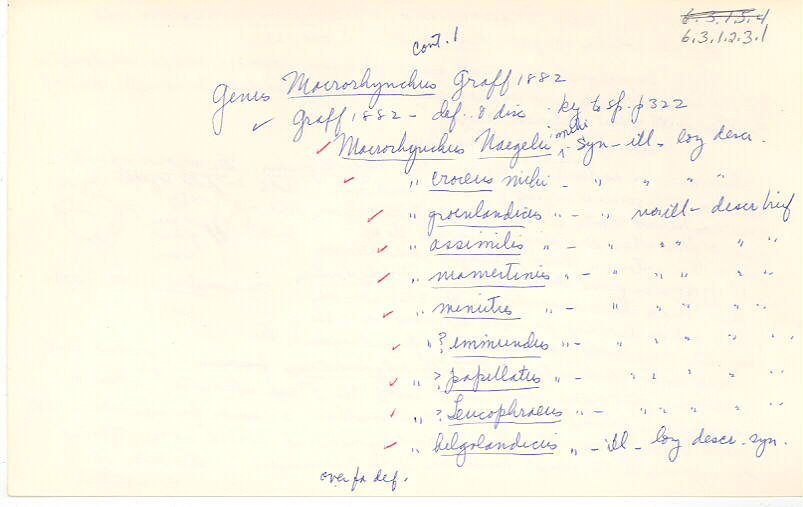 6.3.1.5.4
cont. 1
6.3.1.2.3.1
Genus Macrorhynchus Graff 1882
✓ Graff 1882 - def. & disc. key to sp. p 322
✓ Macrorhynchus Naegelii mihi - syn - ill - long descr.
✓ " croceus mihi - " " " "
✓ " groenlandicus " - " no ill - descr brief
✓ " assimilis " - " " " " "
✓ " mamertinus " - " " " " "
✓ " minutus " - " " " " "
✓ " ? immundus " - " " " " "
✓ " ? papillatus " - " " " " "
✓ " ? Leucophraeus " - " " " " "
✓ " helgolandicus " - ill - long descr. - syn.
over for def.